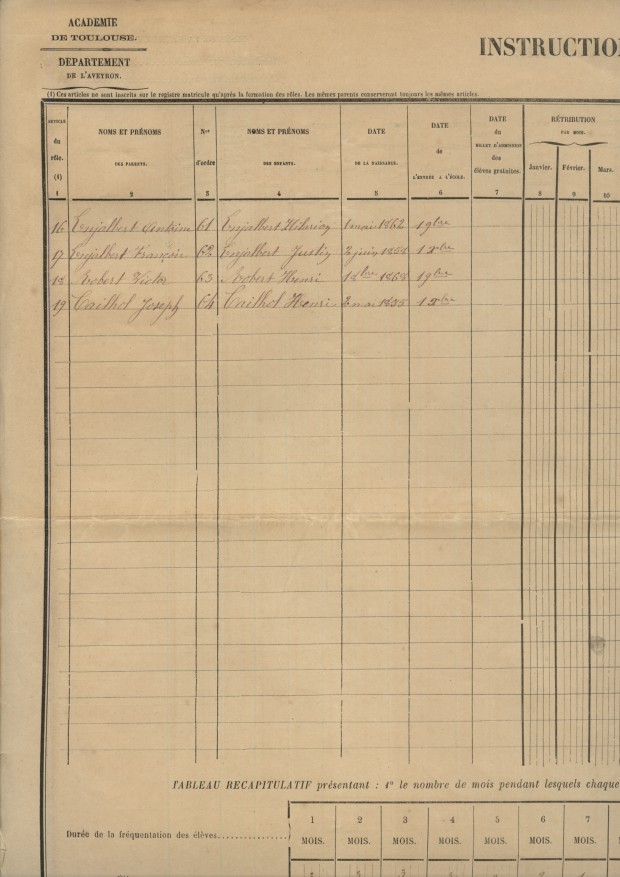 ACADEMIE
DE TOULOUSE.
DEPARTEMENT
DE L'AVEYRON.
INSTRUCTIO
(1) Ces articles ne sont inscrits sur le registre matricule qu'après la formation des rôles. Les mêmes parents conserveront toujours les mêmes articles.
ARTICLE du rôle. (1) 1
NOMS ET PRÉNOMS DES PARENTS. 2
Nos d'ordre 3
NOMS ET PRÉNOMS DES ENFANTS. 4
DATE DE LA NAISSANCE. 5
DATE de L'ENTRÉE A L'ÉCOLE. 6
DATE du BILLET D'ADMISSION des élèves gratuites. 7
RÉTRIBUTION PAR MOIS.
Janvier. 8
Février. 9
Mars. 10
16 Enjalbert 61 Enjalbert 1 mai 1862 1 9bre
17 Enjalbert François 62 Enjalbert Justin 2 juin 1 xbre
18 Robert Victor 63 Robert Henri 1 9bre
19 Cailhol Joseph 64 Cailhol Henri 1 xbre
TABLEAU RECAPITULATIF présentant : 1° le nombre de mois pendant lesquels chaque
1 2 3 4 5 6 7
Durée de la fréquentation des élèves..............
MOIS. MOIS. MOIS. MOIS. MOIS. MOIS. MOIS.